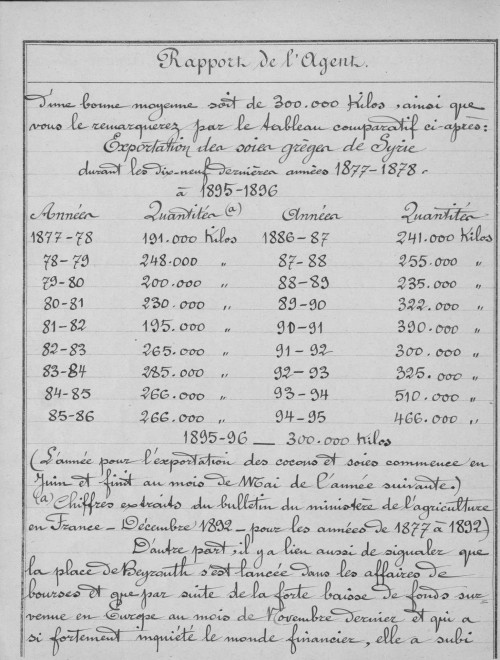 Rapport de l'Agent.
d'une bonne moyenne soit de 300.000 Kilos, ainsi que
vous le remarquerez par le tableau comparatif ci-après:
Exportation des soies grèges de Syrie
durant les dix-neuf dernières années 1877-1878.
à 1895-1896
Années Quantités (a) Années Quantités
1877-78 191.000 Kilos 1886-87 241.000 Kilos
78-79 248.000 " 87-88 255.000 "
79-80 200.000 " 88-89 235.000 "
80-81 230.000 " 89-90 322.000 "
81-82 195.000 " 90-91 390.000 "
82-83 265.000 " 91-92 300.000 "
83-84 285.000 " 92-93 325.000 "
84-85 266.000 " 93-94 510.000 "
85-86 266.000 " 94-95 466.000 "
1895-96 — 300.000 Kilos
(L'année pour l'exportation des cocons et soies commence en
Juin et finit au mois de Mai de l'année suivante.)
(a) Chiffres extraits du bulletin du ministère de l'agriculture
en France - Décembre 1892 - pour les années de 1877 à 1892)
D'autre part, il y a lieu aussi de signaler que
la place de Beyrouth s'est lancée dans les affaires de
bourses et que par suite de la forte baisse de fonds sur-
venue en Europe au mois de Novembre dernier et qui a
si fortement inquiété le monde financier, elle a subi